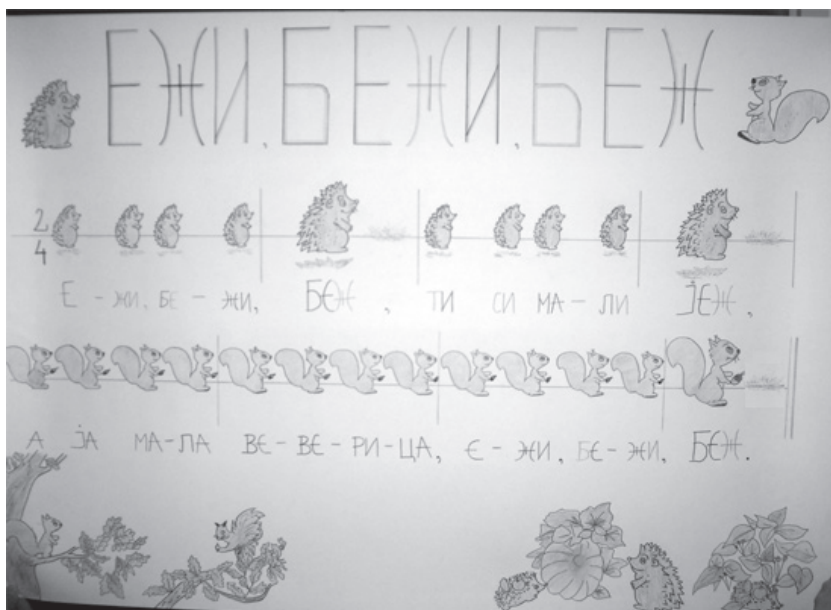 ЕЖИ, БЕЖИ, БЕЖ
2
4
Е - ЖИ, БЕ - ЖИ, БЕЖ, ТИ СИ МА - ЛИ ЈЕЖ,
А ЈА МА-ЛА ВЕ-ВЕ-РИ-ЦА, Е - ЖИ, БЕ-ЖИ, БЕЖ.